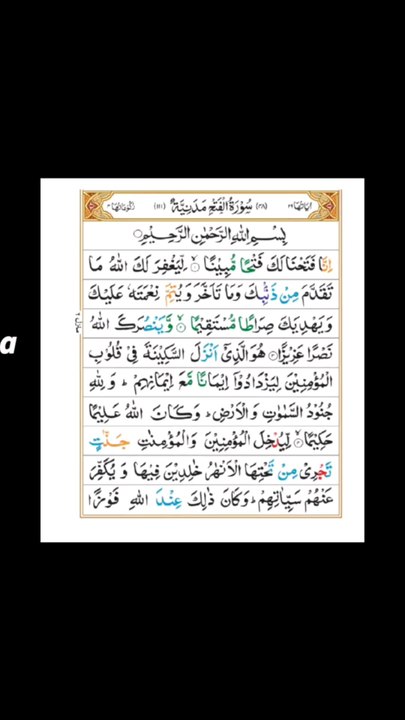 اٰیاتها ٢٩ (٤٨) سُوْرَةُ الْفَتْحِ مَدَنِيَّةٌ (١١١) رکوعاتها ٤
بِسْمِ اللهِ الرَّحْمٰنِ الرَّحِيْمِ
اِنَّا فَتَحْنَا لَكَ فَتْحًا مُّبِيْنًا ۙ لِّيَغْفِرَ لَكَ اللهُ مَا
تَقَدَّمَ مِنْ ذَنْۢبِكَ وَمَا تَاَخَّرَ وَيُتِمَّ نِعْمَتَهٗ عَلَيْكَ
وَيَهْدِيَكَ صِرَاطًا مُّسْتَقِيْمًا ۙ وَّيَنْصُرَكَ اللهُ
نَصْرًا عَزِيْزًا هُوَ الَّذِيْٓ اَنْزَلَ السَّكِيْنَةَ فِيْ قُلُوْبِ
الْمُؤْمِنِيْنَ لِيَزْدَادُوْٓا اِيْمَانًا مَّعَ اِيْمَانِهِمْ ؕ وَلِلّٰهِ
جُنُوْدُ السَّمٰوٰتِ وَالْاَرْضِ ؕ وَكَانَ اللهُ عَلِيْمًا
حَكِيْمًا ۙ لِّيُدْخِلَ الْمُؤْمِنِيْنَ وَالْمُؤْمِنٰتِ جَنّٰتٍ
تَجْرِيْ مِنْ تَحْتِهَا الْاَنْهٰرُ خٰلِدِيْنَ فِيْهَا وَيُكَفِّرَ
عَنْهُمْ سَيِّاٰتِهِمْ ؕ وَكَانَ ذٰلِكَ عِنْدَ اللهِ فَوْزًا
a